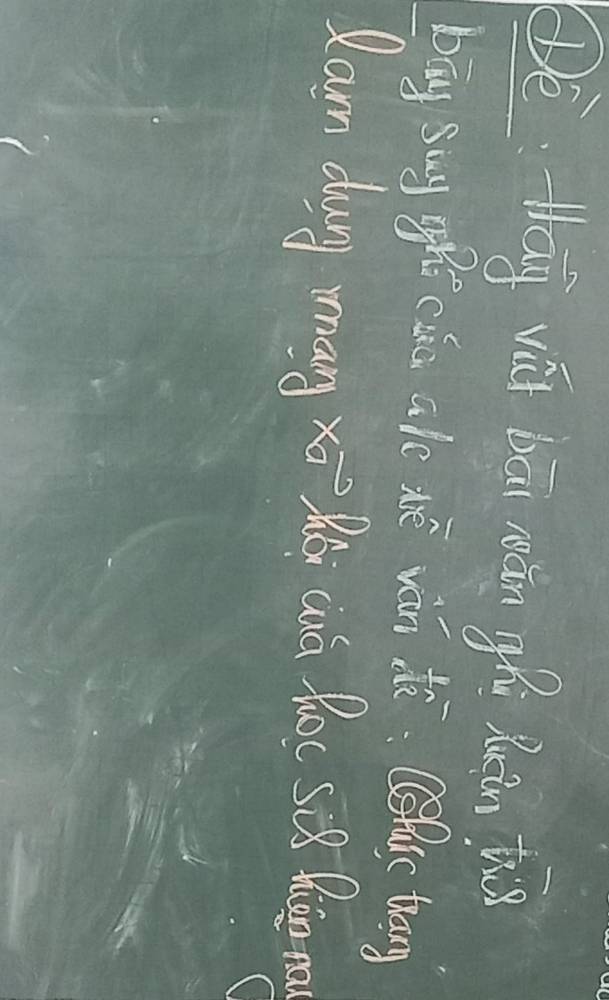 Đề : Hãy viết bài văn nghị luận trìh
bày suy nghĩ của a/c về vấn đề : Thực trạng
lạm dụng mạng xã hội của học sih hiện nay